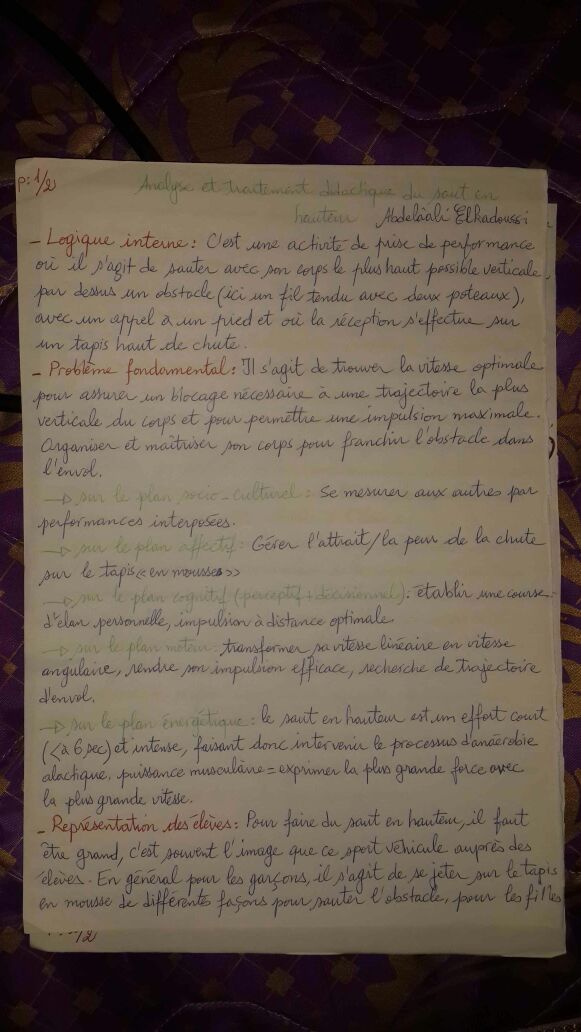 p: 1/2
Analyse et traitement didactique du saut en
hauteur Abdelaâli ElRadoussi
- Logique interne : C'est une activité de prise de performance
où il s'agit de sauter avec son corps le plus haut possible verticale
par dessus un obstacle (ici un fil tendu avec deux poteaux),
avec un appel à un pied et où la réception s'effectue sur
un tapis haut de chute.
- Problème fondamental : Il s'agit de trouver la vitesse optimale
pour assurer un blocage nécessaire à une trajectoire la plus
verticale du corps et pour permettre une impulsion maximale.
Organiser et maîtriser son corps pour franchir l'obstacle dans
l'envol.
→ sur le plan socio-culturel : Se mesurer aux autres par
performances interposées.
→ sur le plan affectif : Gérer l'attrait/la peur de la chute
sur le tapis << en mousses >>
→ sur le plan cognitif (perceptif + décisionnel) : établir une course
d'élan personnelle, impulsion à distance optimale.
→ sur le plan moteur : transformer sa vitesse linéaire en vitesse
angulaire, rendre son impulsion efficace, recherche de trajectoire
d'envol.
→ sur le plan énergétique : le saut en hauteur est un effort court
(< à 6 sec) et intense, faisant donc intervenir le processus d'anaérobie
alactique. puissance musculaire = exprimer la plus grande force avec
la plus grande vitesse.
- Représentation des élèves : Pour faire du saut en hauteur, il faut
être grand, c'est souvent l'image que ce sport véhicule auprès des
élèves. En général pour les garçons, il s'agit de se jeter sur le tapis
en mousse de différents façons pour sauter l'obstacle, pour les filles
2/2